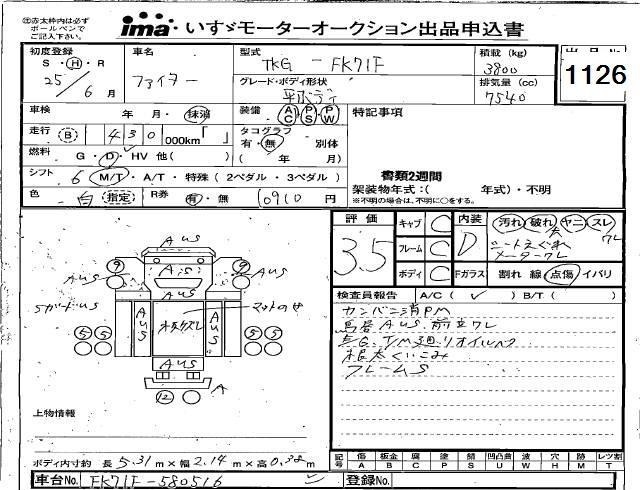 ㊟赤太枠内は必ず
ボールペンで
ご記入下さい。
ima いすゞモーターオークション出品申込書
初度登録
S・H・R
25 6月
車名
ファイター
型式
TKG - FK71F
グレード・ボディ形状
平ボディ
積載 (kg)
3800
排気量 (cc)
7540
1126
車検 年・月・抹消
装備 AC PS PW
特記事項
走行 B 430 000km「 」
タコグラフ
有・無 別体
( 年 月)
燃料 G・D・HV 他( )
シフト 6 M/T・A/T・特殊(2ペダル・3ペダル)
書類2週間
架装物年式:( 年式)・不明
※不明の場合は、不明に○をする。
色 白 指定 R券 有・無 10910 円
評価
3.5
キャブ C
フレーム C
ボディ C
内装 D
汚れ 破れ ヤニ スレ
シートえぐれ
メーターワレ
Fガラス 割れ 線 点傷 イバリ
検査員報告 A/C( ✓ ) B/T( )
カンバン消PM
鳥居AUS.前立ワレ
EG.T/M3辺りオイルハク
根太くいこみ
フレームS
AUS
9 9
AUS AUS
AUS
5ガードUS
AUS AUS
マットのせ
5 5 5 5
AUS
A
12
上物情報
ボディ内寸約 長5.31m×幅2.14m×高0.38m
記号 傷 A 板金 B 腐 C 塗 P 錆 S 凹凸曲 U 波 W 穴 H 跡 M レツ割 T
車台No. FK71F-580516
登録No.